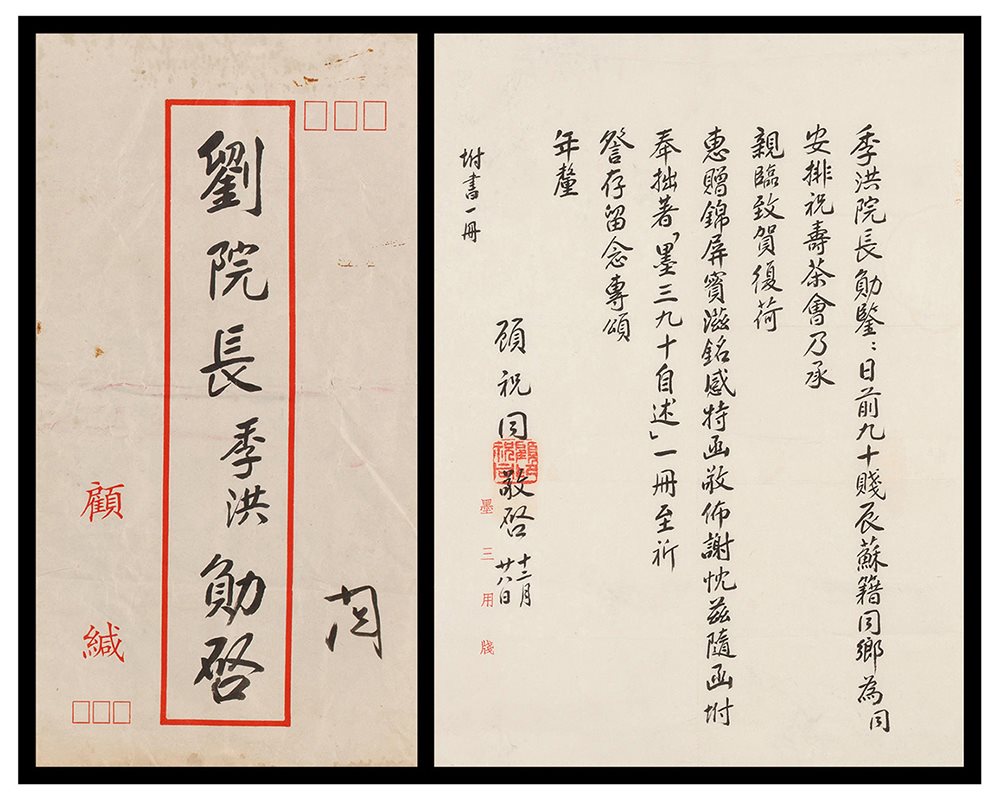 劉院長季洪勛啓
顧緘
季洪院長勛鑒：日前九十賤辰蘇籍同鄉為同
安排祝壽茶會乃承
親臨致賀復荷
惠贈錦屏實滋銘感特函敬佈謝忱茲隨函坿
奉拙著「墨三九十自述」一冊至祈
詧存留念專頌
年釐
顧祝同敬啓
十二月
廿八日
坿書一冊
墨三用牋